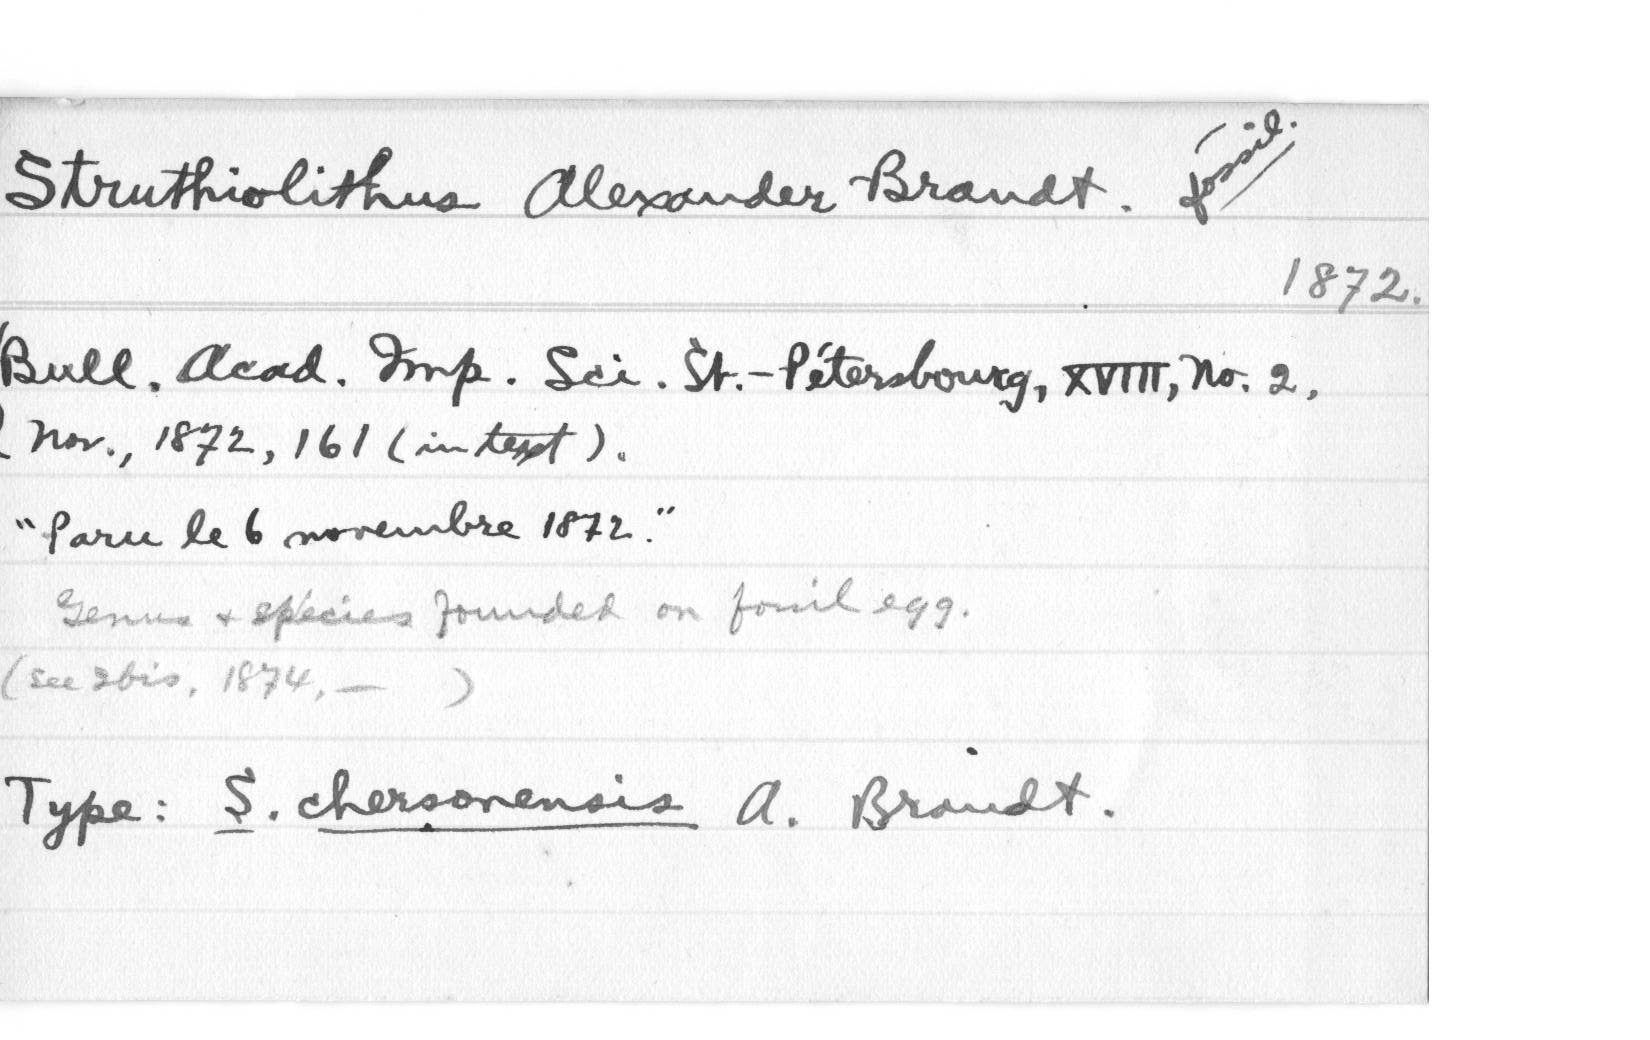 Struthiolithus Alexander Brandt. fossil.
1872.
Bull. Acad. Imp. Sci. St.-Pétersbourg, XVIII, No. 2,
Nov., 1872, 161 (in text).
"Paru le 6 novembre 1872."
Genus + species founded on fossil egg.
(see Ibis, 1874, — )
Type: S. chersonensis A. Brandt.